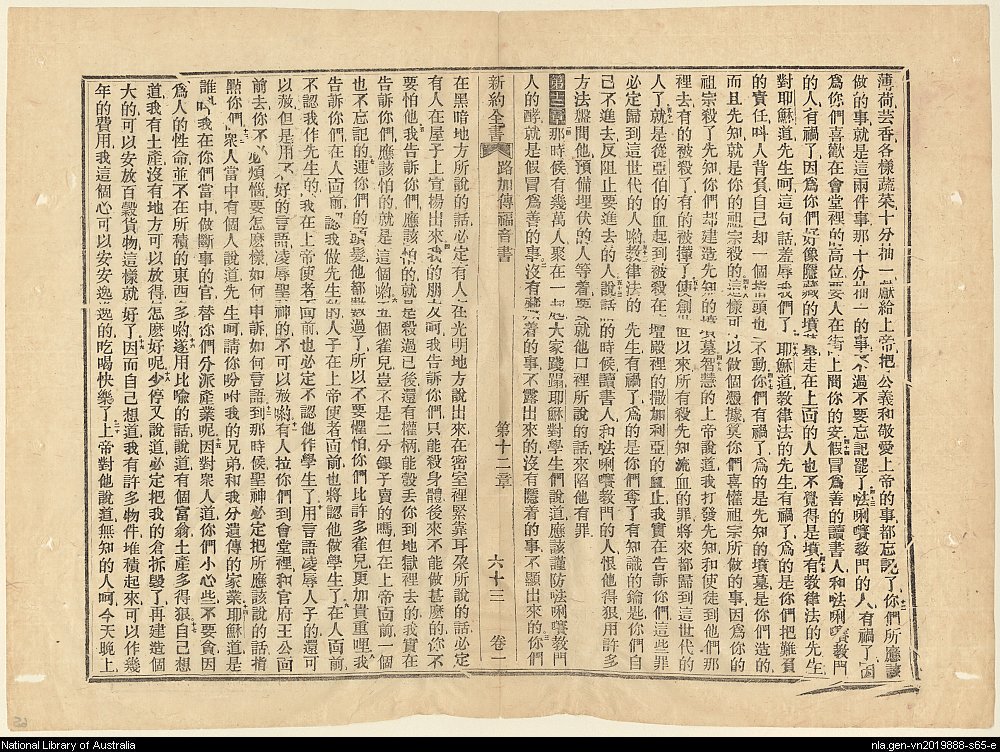 薄荷芸香各樣蔬菜十分抽一獻給上帝把公義和敬愛上帝的事都忘記了你們所應該
做的事就是這兩件事那十分抽一的事不過不要忘記罷了㕸唎㘔教門的人有禍了因
爲你們喜歡在會堂裡的高位要人在街上問你的安假冒爲善的讀書人和㕸唎㘔教門
的人有禍了因爲你們好像朦藏的墳墓走在上面的人也不覺得是墳有教律法的先生
對耶穌道先生呵這句話羞辱我們了耶穌道教律法的先生有禍了爲的是你們把難負
的責任叫人背負自己却一個指頭也不動你們有禍了爲的是先知的墳墓是你們造的
而且先知就是你的祖宗殺的這樣可以做個憑據莫你們喜懽祖宗所做的事因爲你的
祖宗殺了先知你們却建造先知的墳墓智慧的上帝說道我打發先知和使徒到他們那
裡去有的被殺了有的被攆了使創世以來所有殺先知流血的罪將來都歸到這世代的
人了就是從亞伯的血起到被殺在壇殿裡的撒加利亞的血止我實在告訴你們這些罪
必定歸到這世代的人喲教律法的先生有禍了爲的是你們奪了有知識的鑰匙你們自
己不進去反阻止要進去的人說話的時候讀書人和㕸唎㘔教門的人恨他得狠用許多
方法盤問他預備埋伏的人等着要就他口裡所說的話來他有罪
第十二章那時候有幾萬人聚在一起大家踐踏耶穌對學生們說道應該謹防㕸唎㘔教門
人的酵就是假冒爲善的事沒有藏着的事不露出來的沒有隱着的事不顯出來的你們
新約全書 路加傳福音書 第十二章 六十三 卷一
在黑暗地方所說的話必定有人在光明地方說出來在密室裡緊靠耳朶所說的話必定
有人在屋子上宣揚出來我的朋友呵我告訴你們只能殺身體後來不能做甚麼的你不
要怕他我告訴你們應該怕的就是殺過已後還有權柄能彀丟你到地獄裡去的我實在
告訴你們應該怕的就是這個喲五個雀兒豈不是二分銀子賣的嗎但在上帝面前一個
也不忘記的連你們的頭髮他都數過了所以不要懼怕你們比許多雀兒更加貴重哩我
告訴你們在人面前認我做先生的人子在上帝使者面前也將認他做學生了在人面前
不認我作先生的我在上帝使者面前也必定不認他作學生了用言語凌辱人子的還可
以赦但是用不好的言語凌辱聖神的不可以赦喲有人拉你們到會堂裡和官府王公面
前去你不必煩惱要怎麽樣如何申訴如何言語到那時候聖神必定把所應該說的話指
點你們衆人當中有個人說道先生呵請你吩咐我的兄弟和我分遺傳的家業耶穌道是
誰叫我在你們當中做斷事的官替你們分派產業呢因對衆人道你們小心些不要貪因
爲人的性命並不在所積的東西多喲遂用比喻的話說道有個富翁土產多得狠自己想
道我有土產沒有地方可以放得怎麼好呢少停又說道必定把我的倉拆毀了再建造個
大的可以安放百穀貨物這樣就好了因而自己想道我有許多物件堆積起來可以作幾
年的費用我這個心可以安安逸逸的吃喝快樂了上帝對他說道無知的人呵今天晚上
National Library of Australia
nla.gen-vn2019888-s65-e